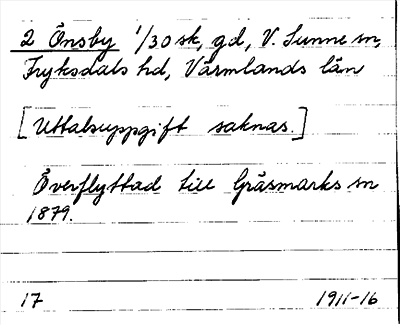 2 Önsby 1/30 sk, gd, V. Sunne sn,
Fryksdals hd, Värmlands län
[Uttalsuppgift saknas.]
Överflyttad till Gräsmarks sn
1879.
17 1911-16